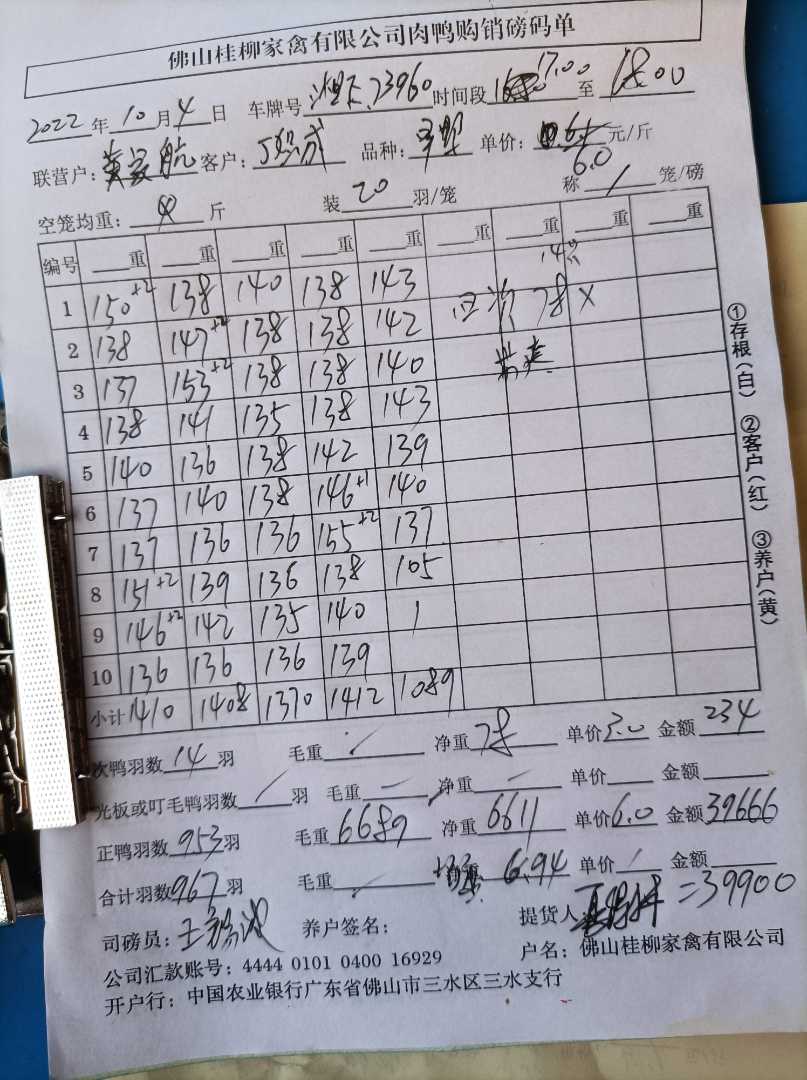 佛山桂柳家禽有限公司肉鸭购销磅码单
2022 年 10 月 4 日 车牌号 湘 73960 时间段 17.00 至 18.00
联营户: 黄 航 客户: 品种: 单价: 6.5 元/斤
6.0
空笼均重: 4 斤 装 20 羽/笼 称 1 笼/磅
编号 重 重 重 重 重 重 重 重 重
1 150+2 138 140 138 143 78 ×
2 138 147+2 138 138 142
3 137 153+2 138 138 140
4 138 141 135 138 143
5 140 136 138 142 139
6 137 140 138 146+1 140
7 137 136 136 155+2 137
8 151+2 139 136 138 105
9 146+2 142 135 140 1
10 136 136 136 139
小计 1410 1408 1370 1412 1089
次鸭羽数 14 羽 毛重 / 净重 78 单价 3.0 金额 234
光板或叮毛鸭羽数 / 羽 毛重 — 净重 — 单价 金额
正鸭羽数 953 羽 毛重 6689 净重 6611 单价 6.0 金额 39666
合计羽数 967 羽 毛重 / 6.94 单价 / 金额
=39900
司磅员: 王 养户签名: 提货人
公司汇款账号: 4444 0101 0400 16929 户名: 佛山桂柳家禽有限公司
开户行: 中国农业银行广东省佛山市三水区三水支行
①存根(白) ②客户(红) ③养户(黄)